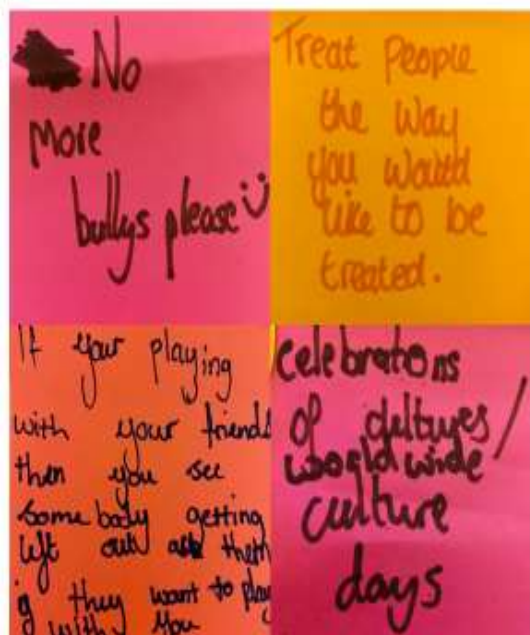 No
More
bullys please
Treat People
the way
you would
like to be
treated.
If your playing
with your friends
then you see
somebody getting
left out ask them
if they want to play
with you
celebrations
of cultures/
worldwide
culture
days